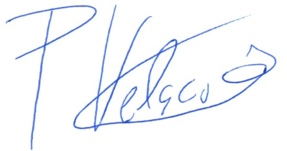 P Velasco